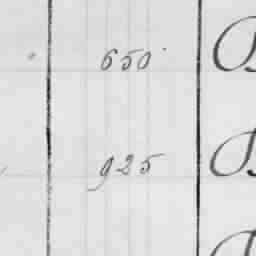 650
925